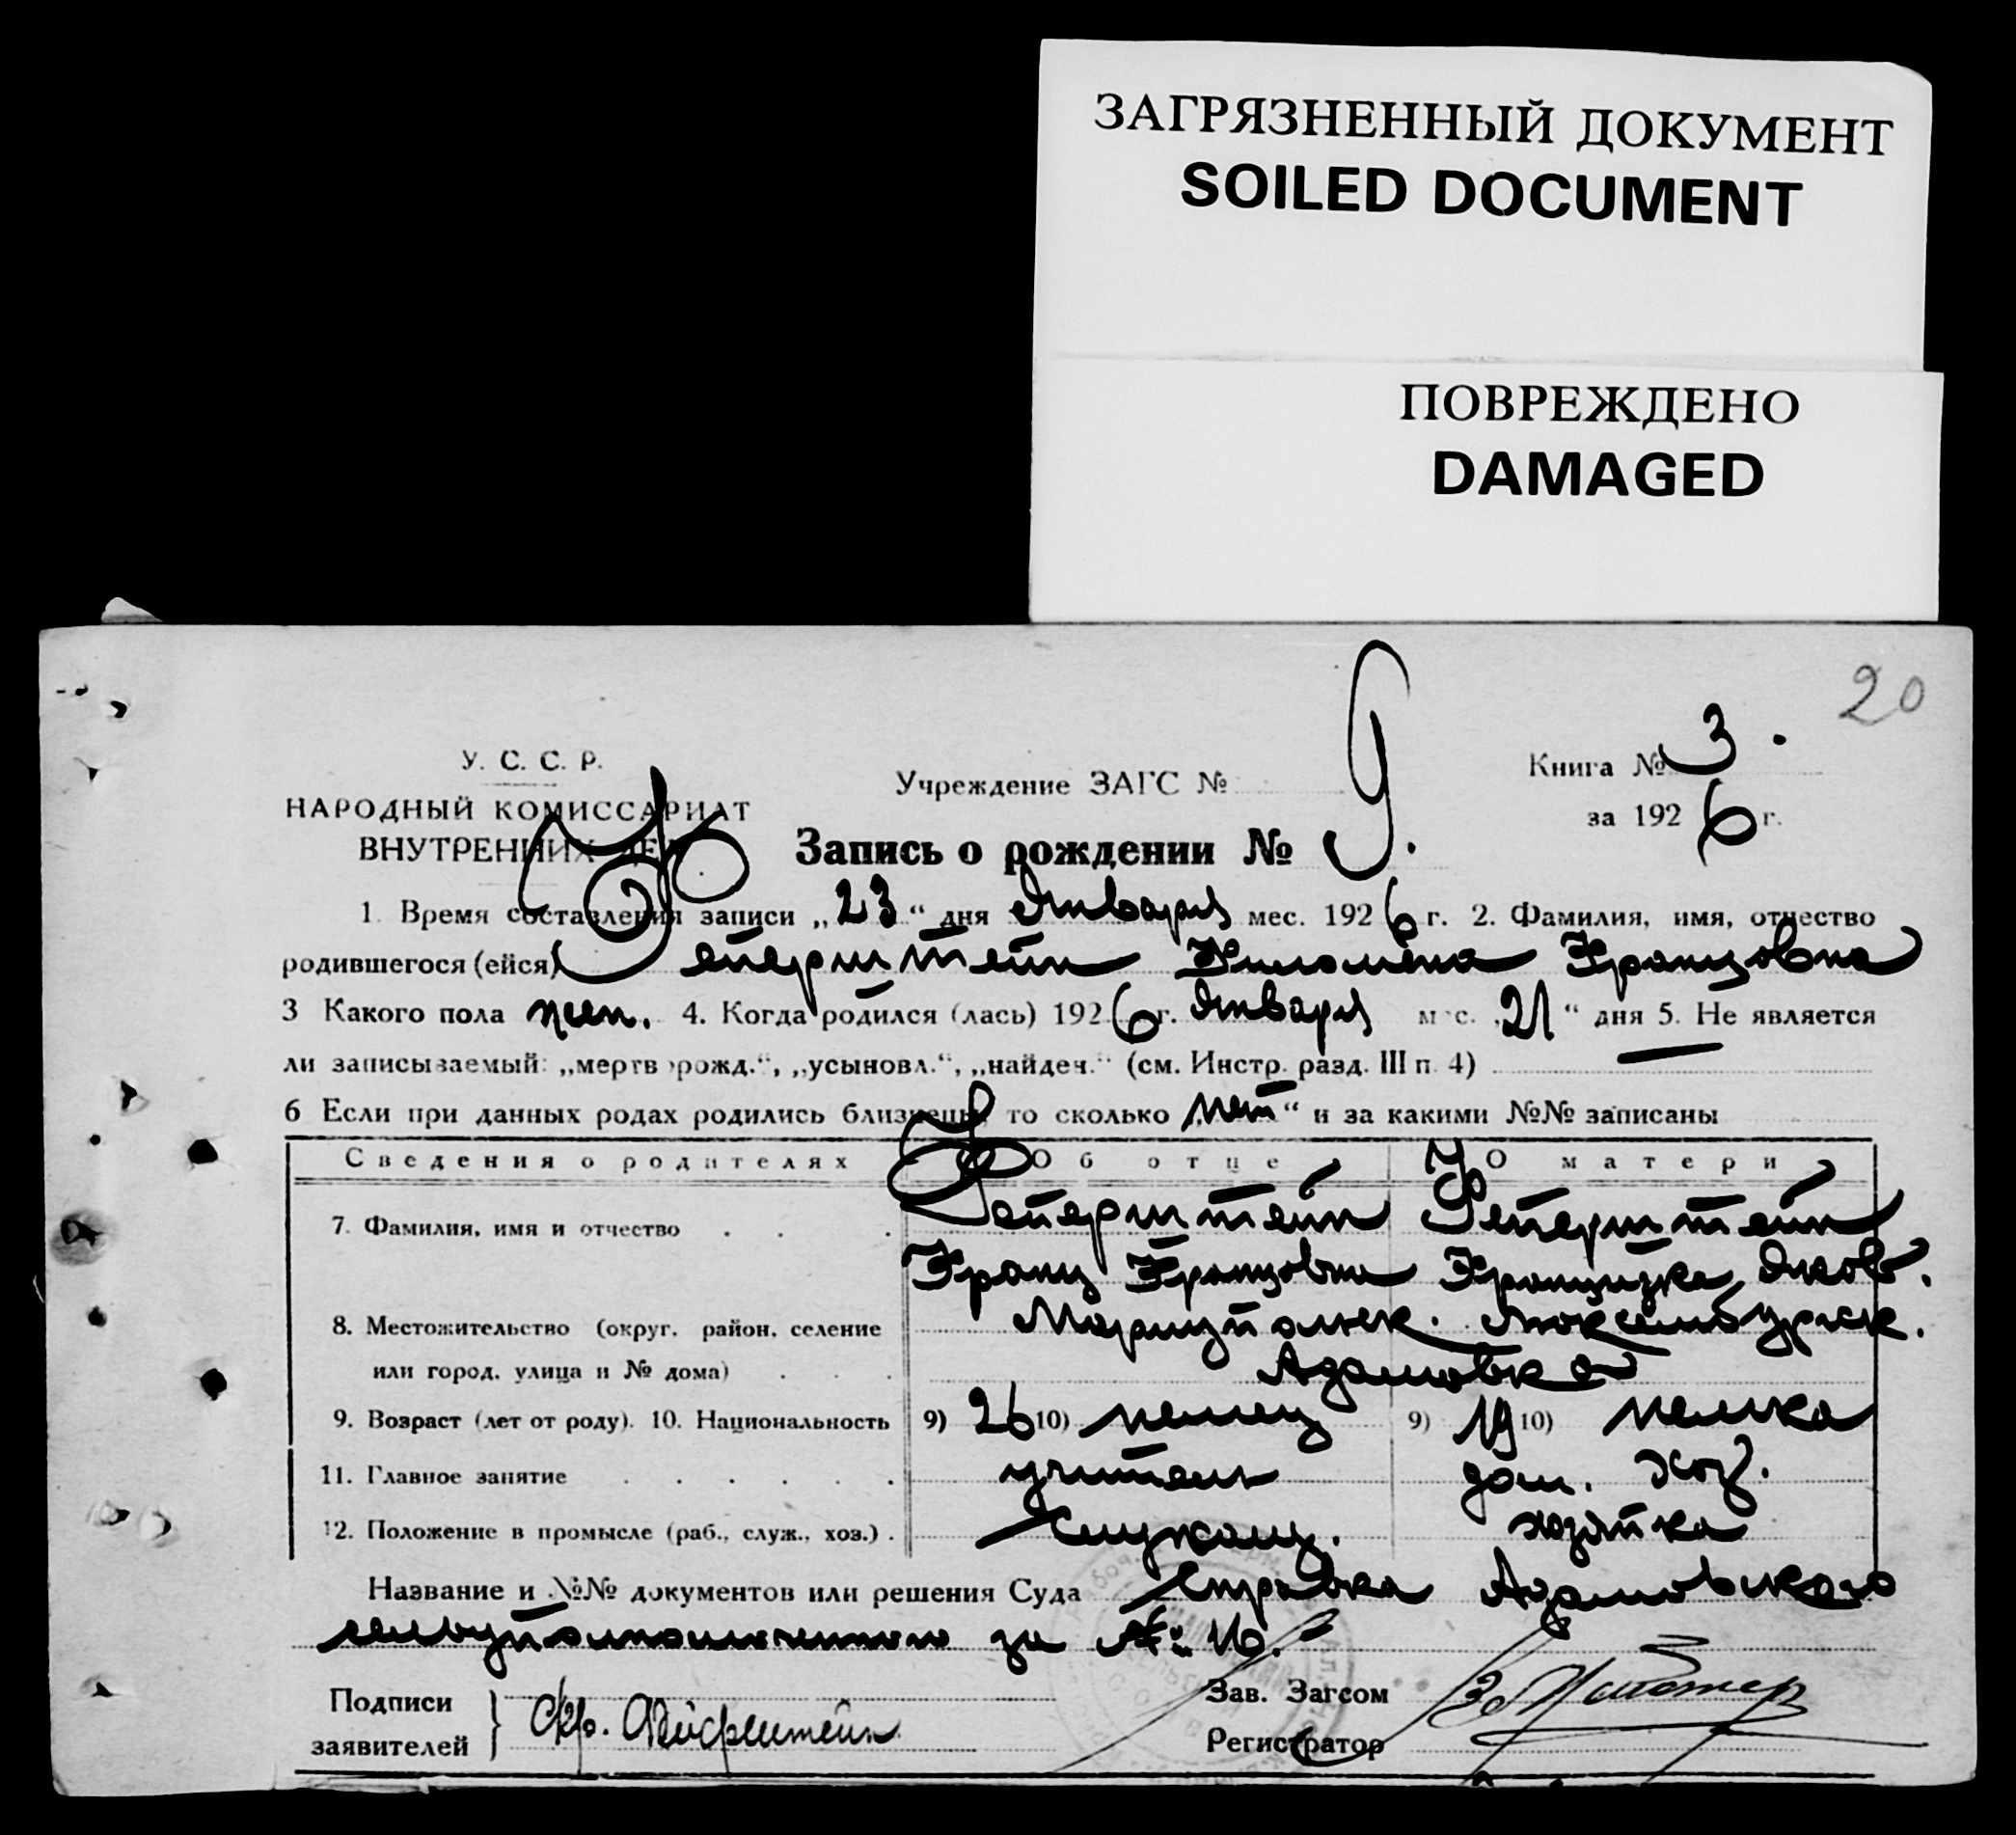 ЗАГРЯЗНЕННЫЙ ДОКУМЕНТ
SOILED DOCUMENT
ПОВРЕЖДЕНО
DAMAGED
20
У. С. С. Р.
НАРОДНЫЙ КОМИССАРИАТ
ВНУТРЕННИХ ДЕЛ
Учреждение ЗАГС №
Книга № 3.
за 1926 г.
Запись о рождении № 9.
1. Время составления записи „23“ дня Января мес. 1926 г. 2. Фамилия, имя, отчество
родившегося (ейся) Фейерштейн Филомена Францовна
3 Какого пола жен. 4. Когда родился (лась) 1926 г. Января мес. „21“ дня 5. Не является
ли записываемый: „мертворожд.“, „усыновл.“, „найден.“ (см. Инстр. разд. III п. 4) —
6 Если при данных родах родились близнецы, то сколько „нет“ и за какими №№ записаны
Сведения о родителях Об отце О матери
7. Фамилия, имя и отчество Фейерштейн Фейерштейн
Франц Францовна Францизка Яков.
8. Местожительство (округ, район, селение Мариупольск. Люксембургск.
или город, улица и № дома) Адамовка
9. Возраст (лет от роду). 10. Национальность 9) 26 10) немец 9) 19 10) немка
11. Главное занятие учитель дом. хоз.
12. Положение в промысле (раб., служ., хоз.) Служащ. хозяйка
Название и №№ документов или решения Суда Справка Адамовского
сельуполномоченного за № 16.
Подписи заявителей Зав. Загсом
Регистратор